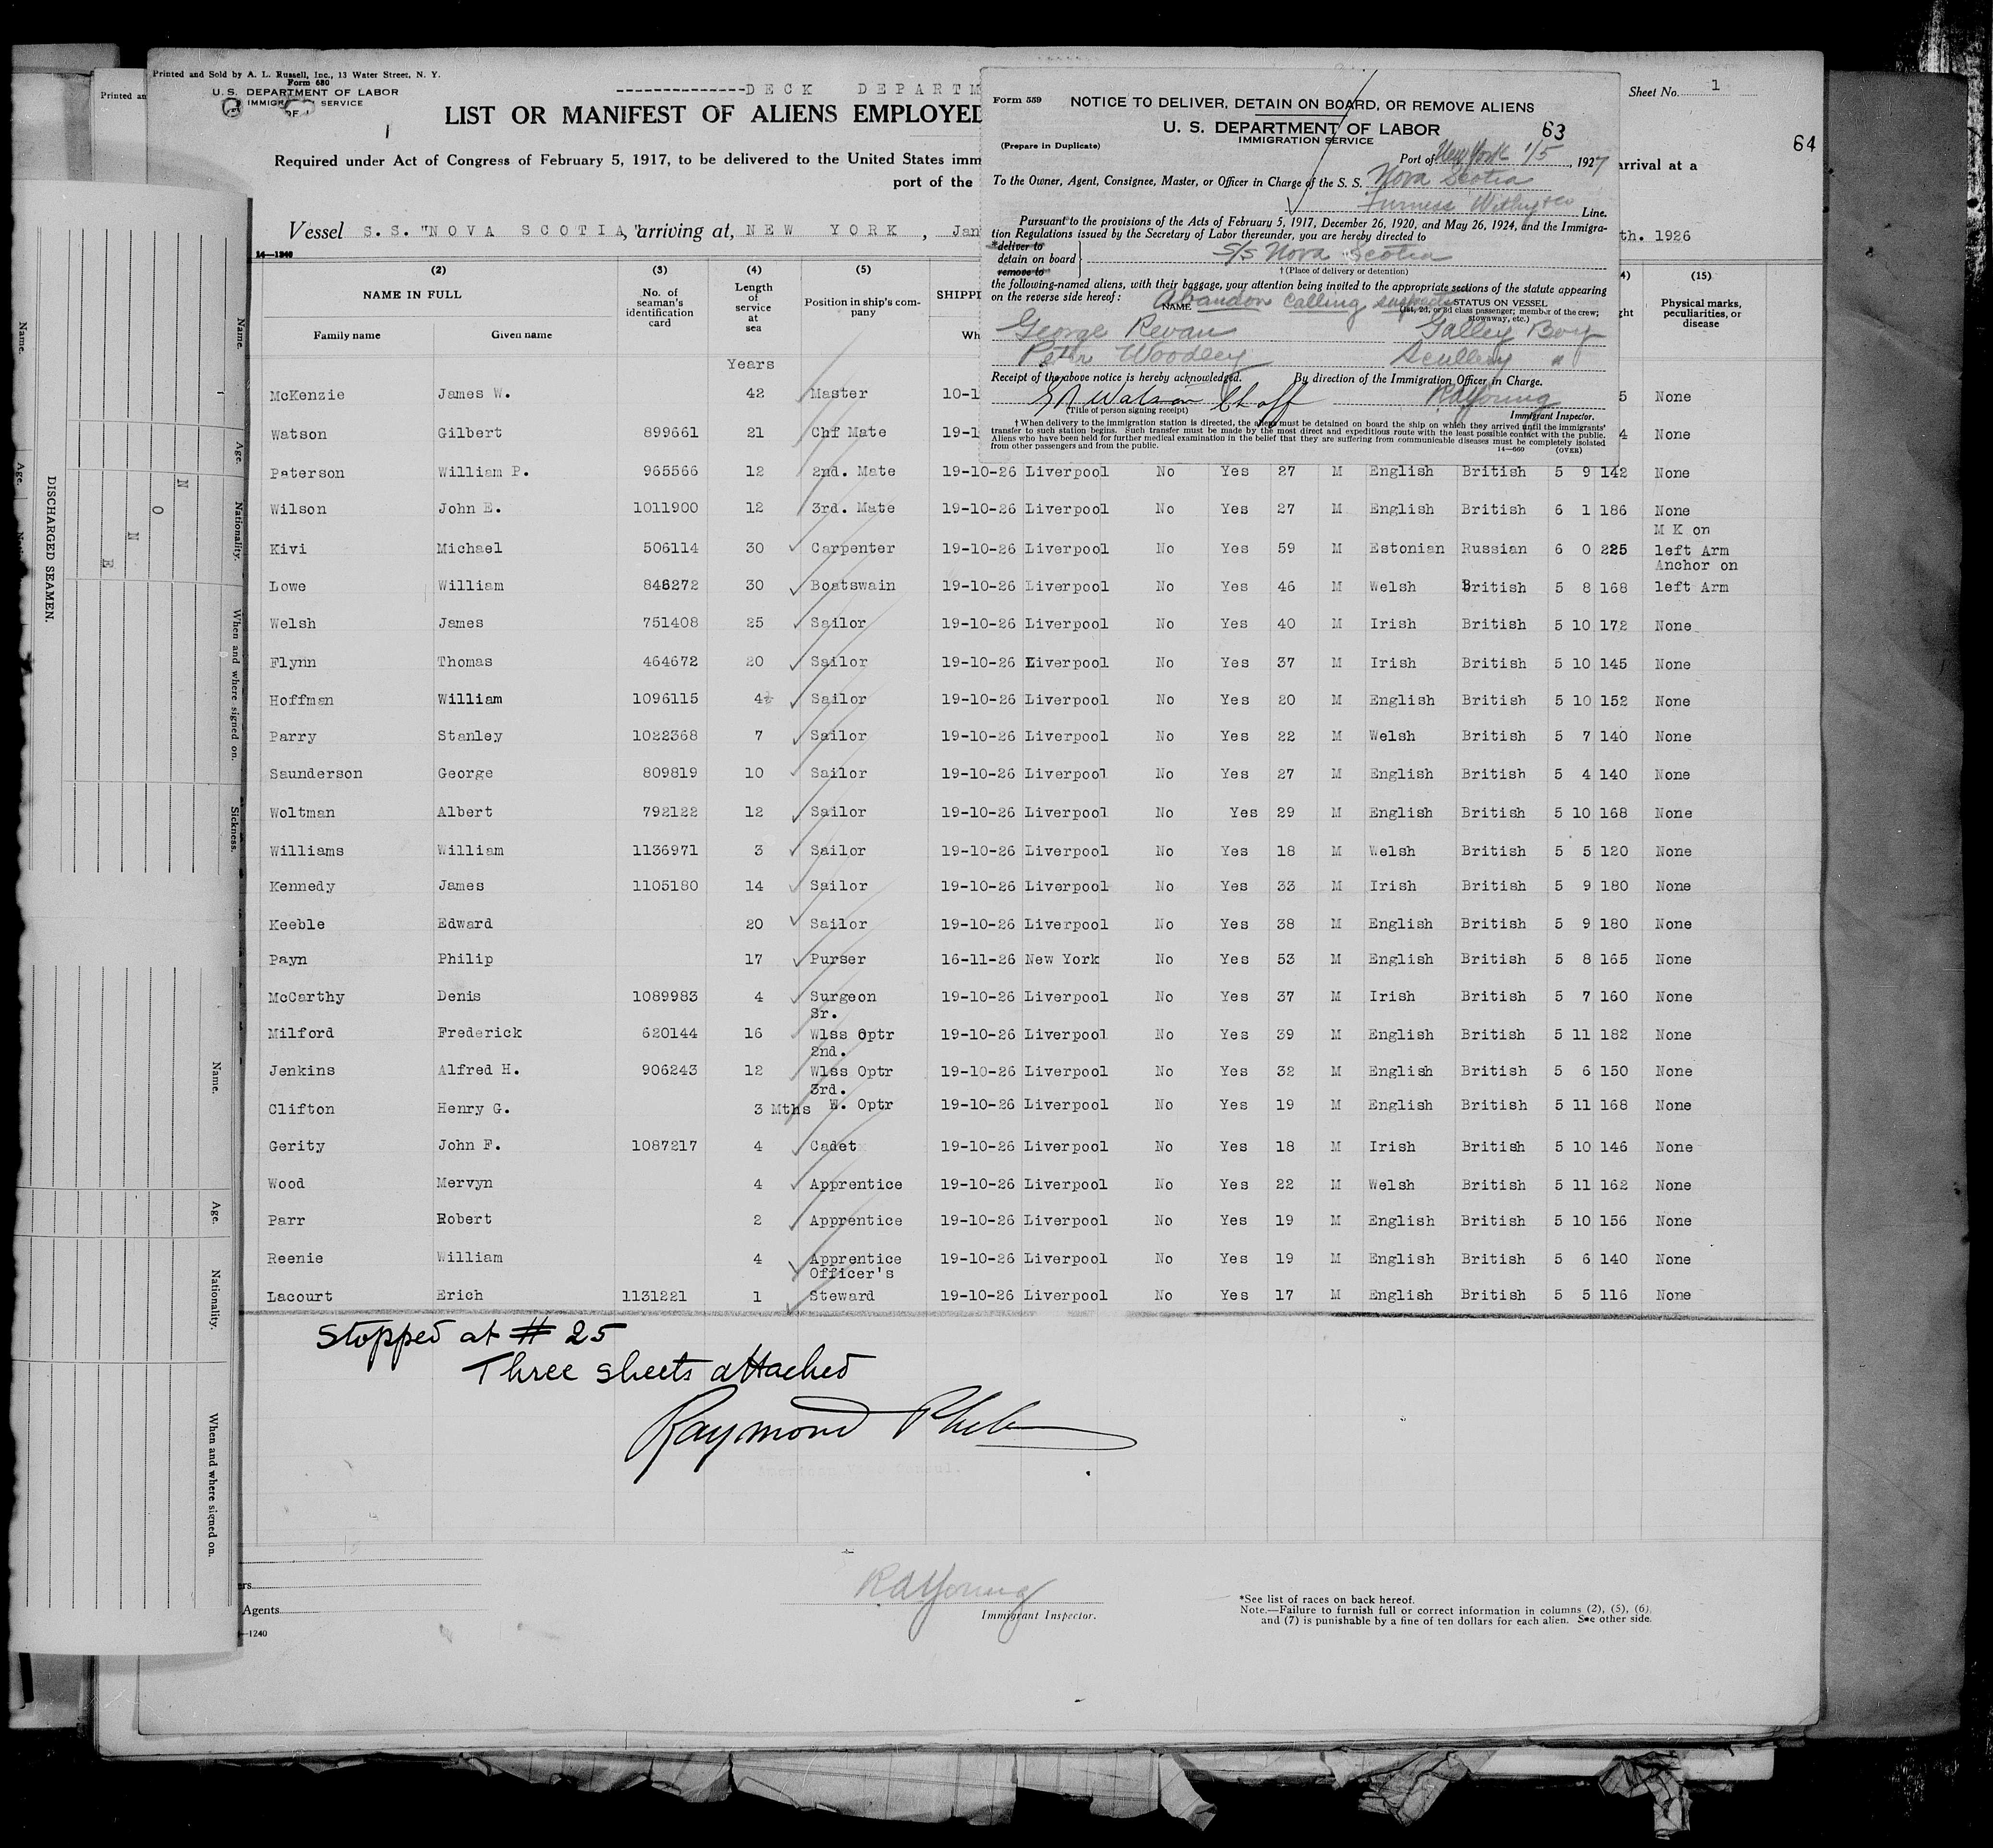 Printed and Sold by A. L. Russell, Inc., 13 Water Street, N. Y.
Form 680
U. S. DEPARTMENT OF LABOR
IMMIGR SERVICE
Printed an
--------------DECK DEPARTM
LIST OR MANIFEST OF ALIENS EMPLOYED
Required under Act of Congress of February 5, 1917, to be delivered to the United States imm
arrival at a
port of the
Sheet No. 1
64
Vessel S.S. "NOVA SCOTIA", arriving at, NEW YORK, Jan
th. 1926
14—1240
Form 559
NOTICE TO DELIVER, DETAIN ON BOARD, OR REMOVE ALIENS
U. S. DEPARTMENT OF LABOR
63
IMMIGRATION SERVICE
(Prepare in Duplicate)
Port of New York 1/5, 1927
To the Owner, Agent, Consignee, Master, or Officer in Charge of the S. S. Nova Scotia
Furness Withy & Co Line.
Pursuant to the provisions of the Acts of February 5, 1917, December 26, 1920, and May 26, 1924, and the Immigra-
tion Regulations issued by the Secretary of Labor thereunder, you are hereby directed to
*deliver to
detain on board
remove to
S/S Nova Scotia
† (Place of delivery or detention)
the following-named aliens, with their baggage, your attention being invited to the appropriate sections of the statute appearing
on the reverse side hereof:
Abandon calling suspects
NAME
STATUS ON VESSEL
(1st, 2d, or 3d class passenger; member of the crew;
stowaway, etc.)
George Revan Galley Boy
Peter Woodley Scullery "
Receipt of the above notice is hereby acknowledged. By direction of the Immigration Officer in Charge.
Watson Ch off
RdYoung
(Title of person signing receipt)
Immigrant Inspector.
† When delivery to the immigration station is directed, the aliens must be detained on board the ship on which they arrived until the immigrants'
transfer to such station begins. Such transfer must be made by the most direct and expeditious route with the least possible contact with the public.
Aliens who have been held for further medical examination in the belief that they are suffering from communicable diseases must be completely isolated
from other passengers and from the public.
14—660 (OVER)
(2) (3) (4) (5) (15)
NAME IN FULL
Family name Given name
No. of seaman's identification card
Length of service at sea
Position in ship's com-pany
SHIPPI
Wh
ght
Physical marks, peculiarities, or disease
Years
McKenzie James W. 42 Master 10-1 5 None
Watson Gilbert 899661 21 Chf Mate 19-1 4 None
Paterson William P. 965566 12 2nd. Mate 19-10-26 Liverpool No Yes 27 M English British 5 9 142 None
Wilson John E. 1011900 12 3rd. Mate 19-10-26 Liverpool No Yes 27 M English British 6 1 186 None
M K on
Kivi Michael 506114 30 Carpenter 19-10-26 Liverpool No Yes 59 M Estonian Russian 6 0 225 left Arm
Anchor on
Lowe William 846272 30 Boatswain 19-10-26 Liverpool No Yes 46 M Welsh British 5 8 168 left Arm
Welsh James 751408 25 Sailor 19-10-26 Liverpool No Yes 40 M Irish British 5 10 172 None
Flynn Thomas 464672 20 Sailor 19-10-26 Liverpool No Yes 37 M Irish British 5 10 145 None
Hoffman William 1096115 4½ Sailor 19-10-26 Liverpool No Yes 20 M English British 5 10 152 None
Parry Stanley 1022368 7 Sailor 19-10-26 Liverpool No Yes 22 M Welsh British 5 7 140 None
Saunderson George 809819 10 Sailor 19-10-26 Liverpool No Yes 27 M English British 5 4 140 None
Woltman Albert 792122 12 Sailor 19-10-26 Liverpool No Yes 29 M English British 5 10 168 None
Williams William 1136971 3 Sailor 19-10-26 Liverpool No Yes 18 M Welsh British 5 5 120 None
Kennedy James 1105180 14 Sailor 19-10-26 Liverpool No Yes 33 M Irish British 5 9 180 None
Keeble Edward 20 Sailor 19-10-26 Liverpool No Yes 38 M English British 5 9 180 None
Payn Philip 17 Purser 16-11-26 New York No Yes 53 M English British 5 8 165 None
McCarthy Denis 1089983 4 Surgeon 19-10-26 Liverpool No Yes 37 M Irish British 5 7 160 None
Sr.
Milford Frederick 620144 16 Wlss Optr 19-10-26 Liverpool No Yes 39 M English British 5 11 182 None
2nd.
Jenkins Alfred H. 906243 12 Wlss Optr 19-10-26 Liverpool No Yes 32 M English British 5 6 150 None
3rd.
Clifton Henry G. 3 Mths W. Optr 19-10-26 Liverpool No Yes 19 M English British 5 11 168 None
Gerity John F. 1087217 4 Cadet 19-10-26 Liverpool No Yes 18 M Irish British 5 10 146 None
Wood Mervyn 4 Apprentice 19-10-26 Liverpool No Yes 22 M Welsh British 5 11 162 None
Parr Robert 2 Apprentice 19-10-26 Liverpool No Yes 19 M English British 5 10 156 None
Reenie William 4 Apprentice 19-10-26 Liverpool No Yes 19 M English British 5 6 140 None
Officer's
Lacourt Erich 1131221 1 Steward 19-10-26 Liverpool No Yes 17 M English British 5 5 116 None
Stopped at # 25
Three sheets attached
Raymond
RdYoung
Immigrant Inspector.
ers
Agents
—1240
*See list of races on back hereof.
Note.—Failure to furnish full or correct information in columns (2), (5), (6),
and (7) is punishable by a fine of ten dollars for each alien. See other side.
DISCHARGED SEAMEN.
Name.
Age.
Nationality.
When and where signed on.
Sickness.
NONE
Name.
Age.
Nationality.
When and where signed on.
Name.
Age.